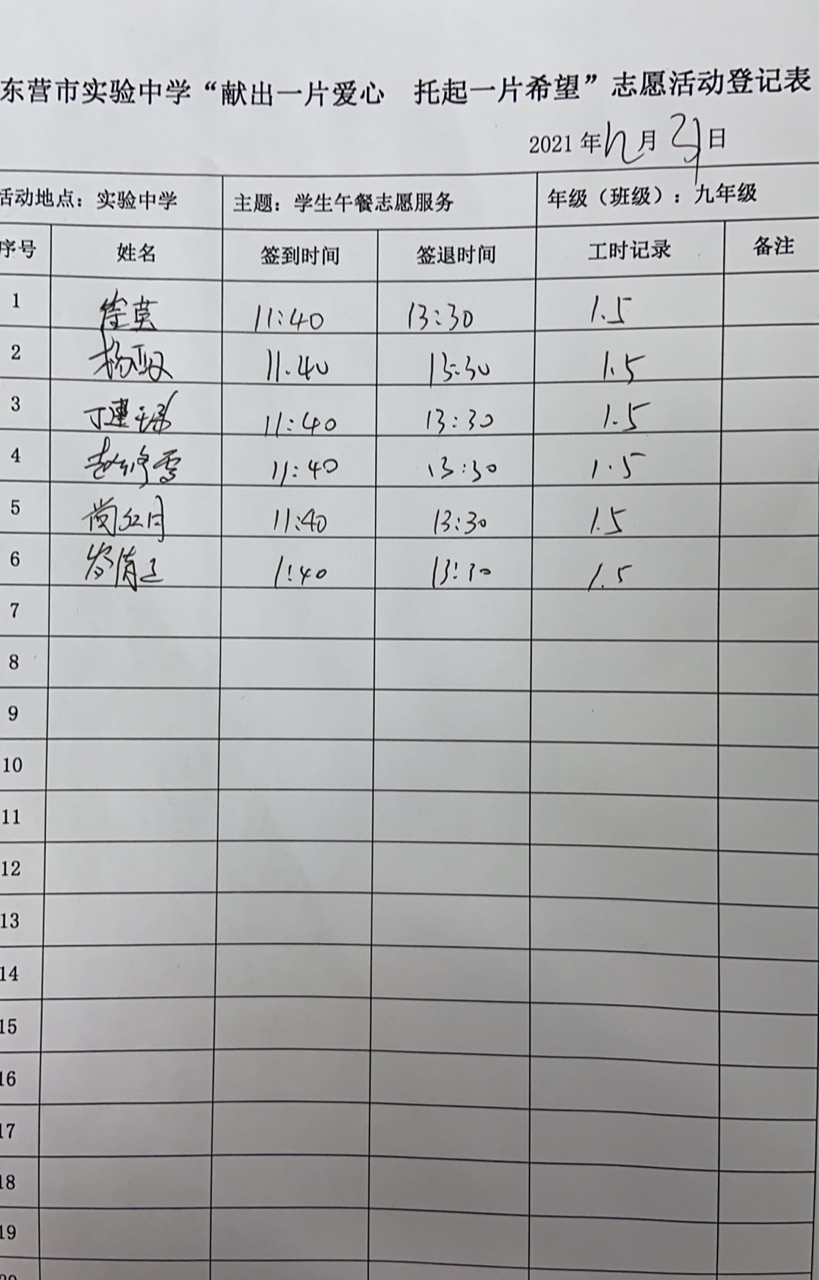 东营市实验中学“献出一片爱心 托起一片希望”志愿活动登记表
2021年12月31日
活动地点：实验中学 主题：学生午餐志愿服务 年级（班级）：九年级
序号 姓名 签到时间 签退时间 工时记录 备注
1 11:40 13:30 1.5
2 11.40 13:30 1.5
3 11:40 13:30 1.5
4 11:40 13:30 1.5
5 尚红月 11:40 13:30 1.5
6 1:40 13:30 1.5
7
8
9
10
11
12
13
14
15
16
17
18
19
20